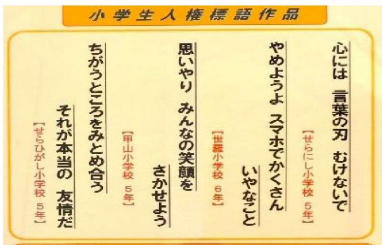 小学生人権標語作品
心には 言葉の刃 むけないで
【せらにし小学校 5年】
やめようよ スマホでかくさん
いやなこと
【世羅小学校 6年】
思いやり みんなの笑顔を
さかせよう
【甲山小学校 5年】
ちがうところをみとめ合う
それが本当の 友情だ
【せらひがし小学校 5年】